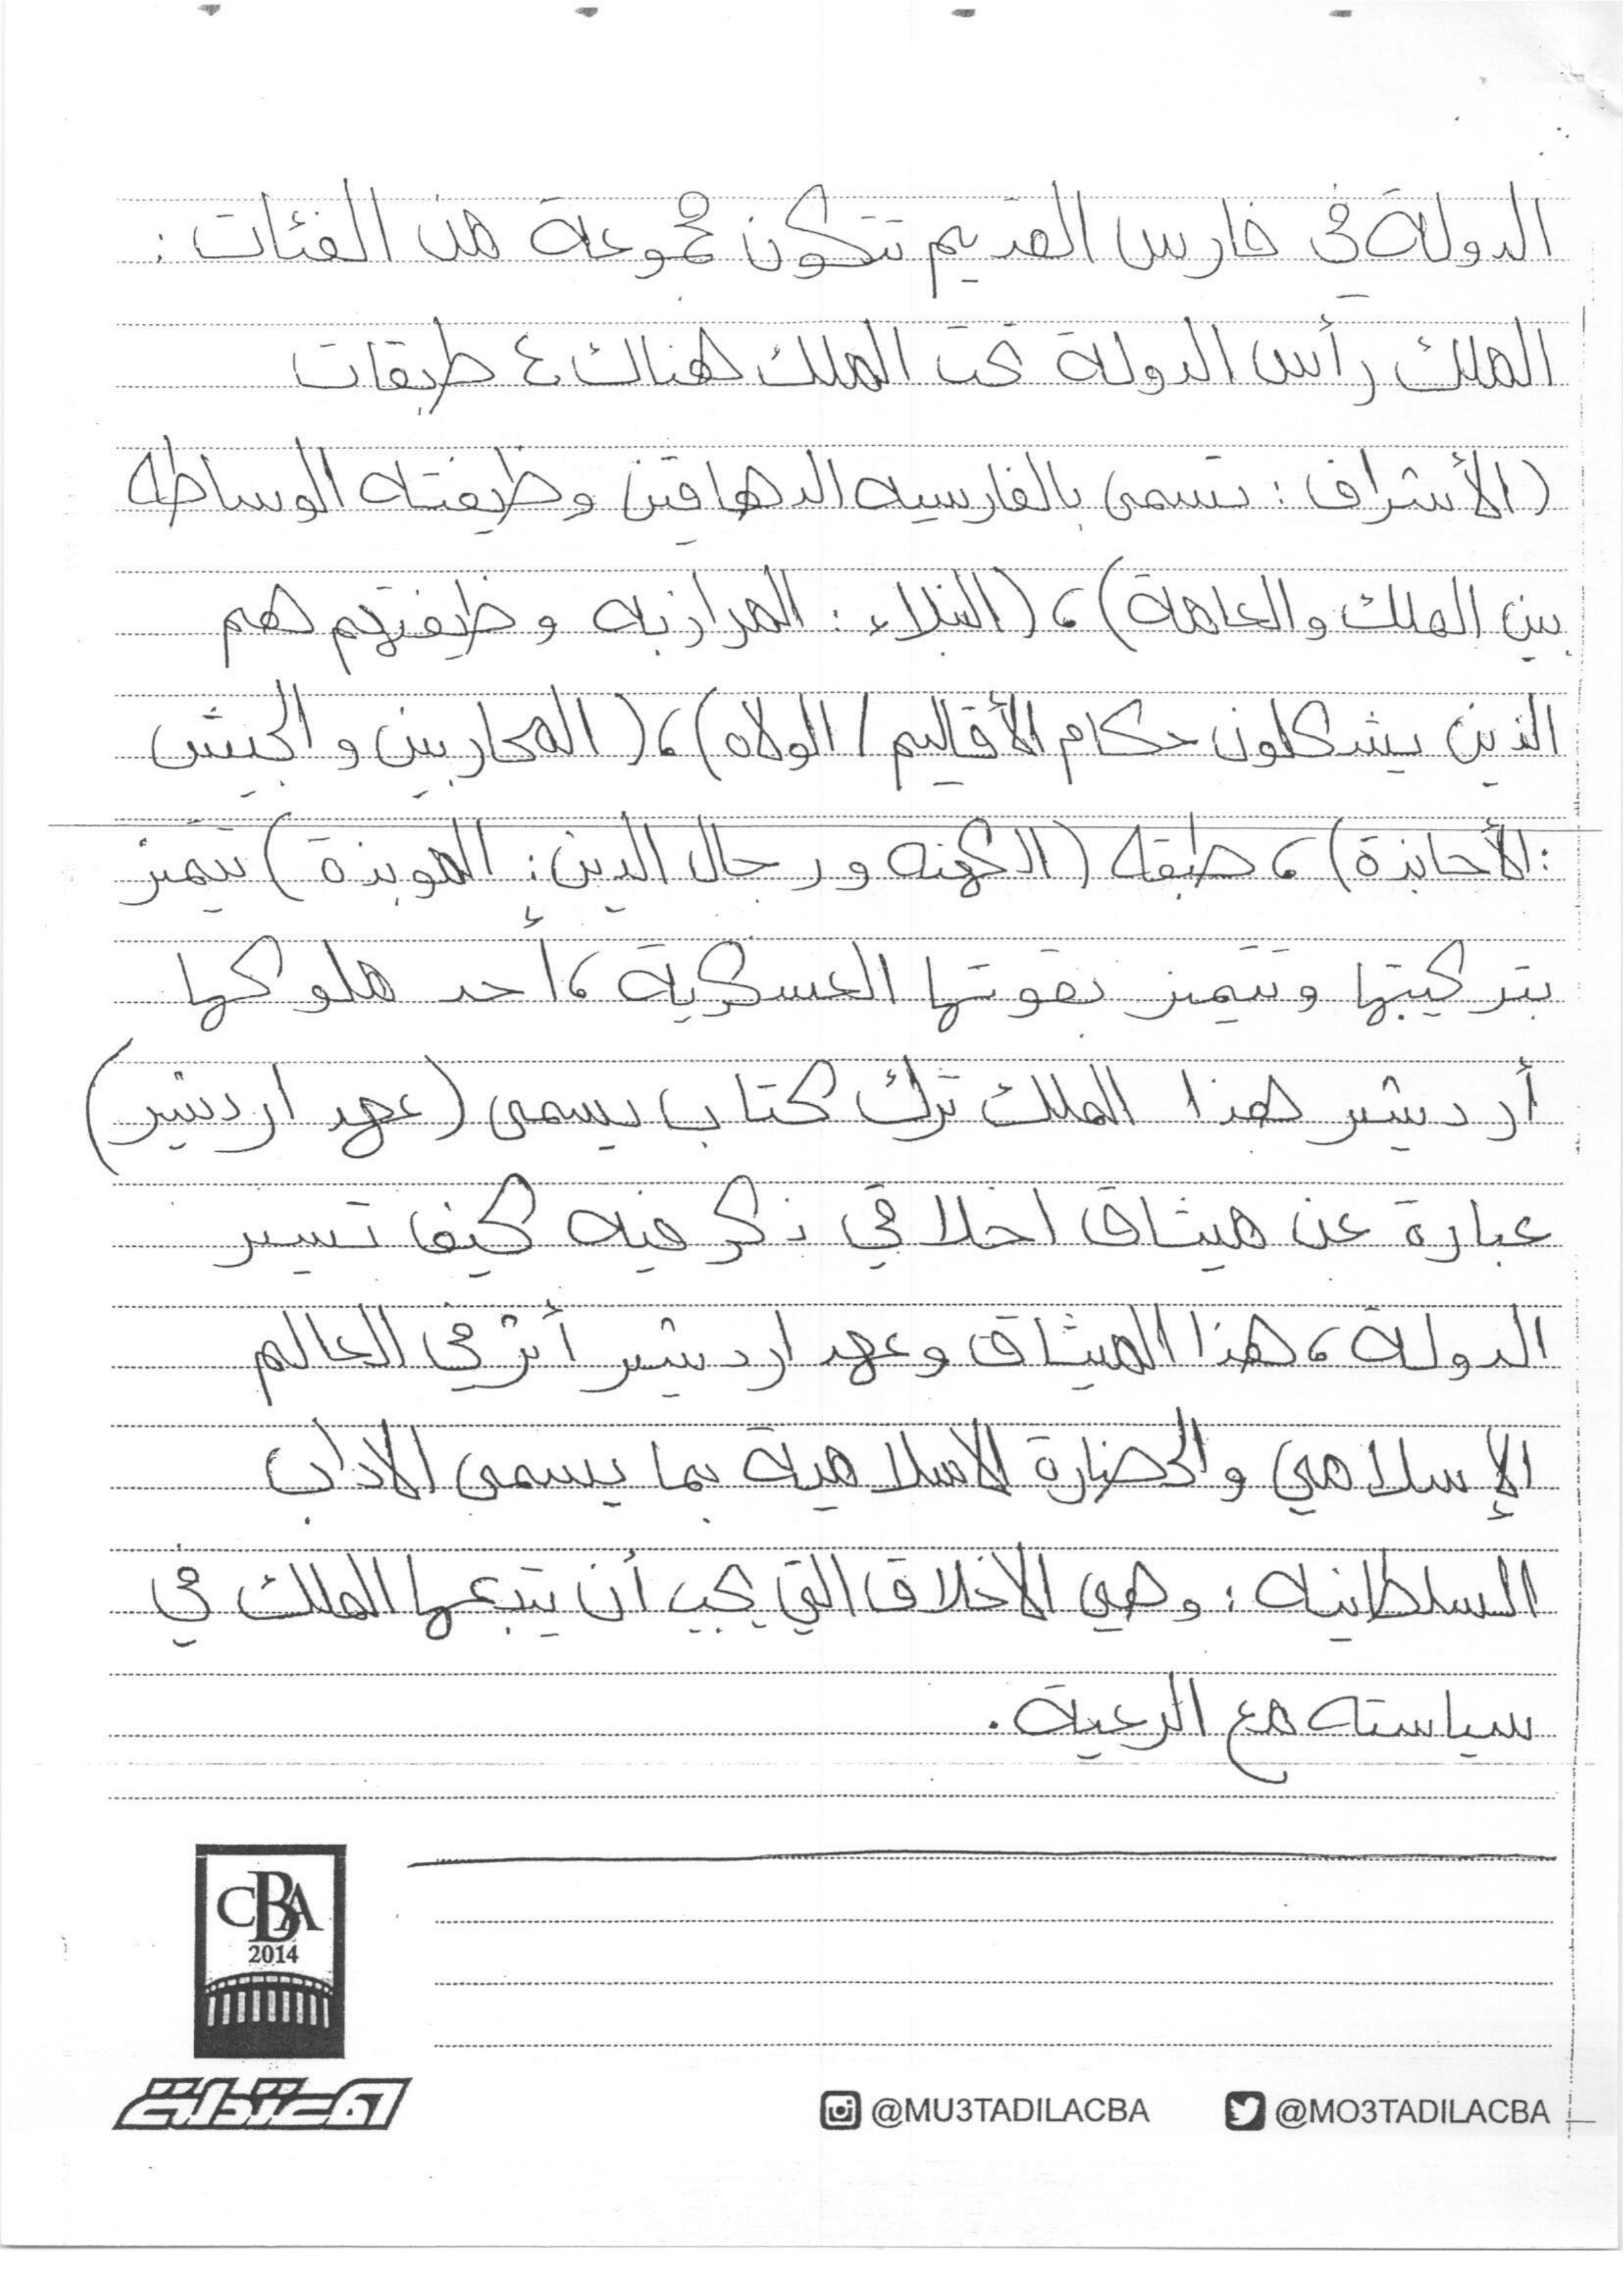 الدولة في فارس القديم تتكون مجموعة من الفئات :
الملك رأس الدولة تحت الملك هناك ٤ طبقات
(الأشراف : تسمى بالفارسيه الدهاقين وظيفته الوساطه
بين الملك والعامة)، (النبلاء : المرازبه وظيفتهم هم
الذين يشكلون حكام الأقاليم / الولاه)، (المحاربين والجيش
: الأحابذة)، طبقه (الكهنه ورجال الدين : الموبذة) تتميز
بتركيبتها وتتميز بقوتها العسكرية، أحد ملوكها
أردشير هذا الملك ترك كتاب يسمى (عهد اردشير)
عبارة عن ميثاق اخلاقي ذكر فيه كيف تسير
الدولة، هذا الميثاق وعهد اردشير أثر في العالم
الإسلامي والحضارة الاسلامية بما يسمى الاداب
السلطانيه : وهي الاخلاق التي يجب أن يتبعها الملك في
سياسته مع الرعية.
CBA
2014
المعتدلة
@MU3TADILACBA @MO3TADILACBA